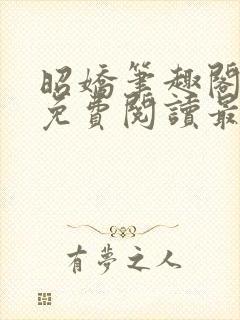 昭嬌筆趣閣
免費閱讀最
有夢之人